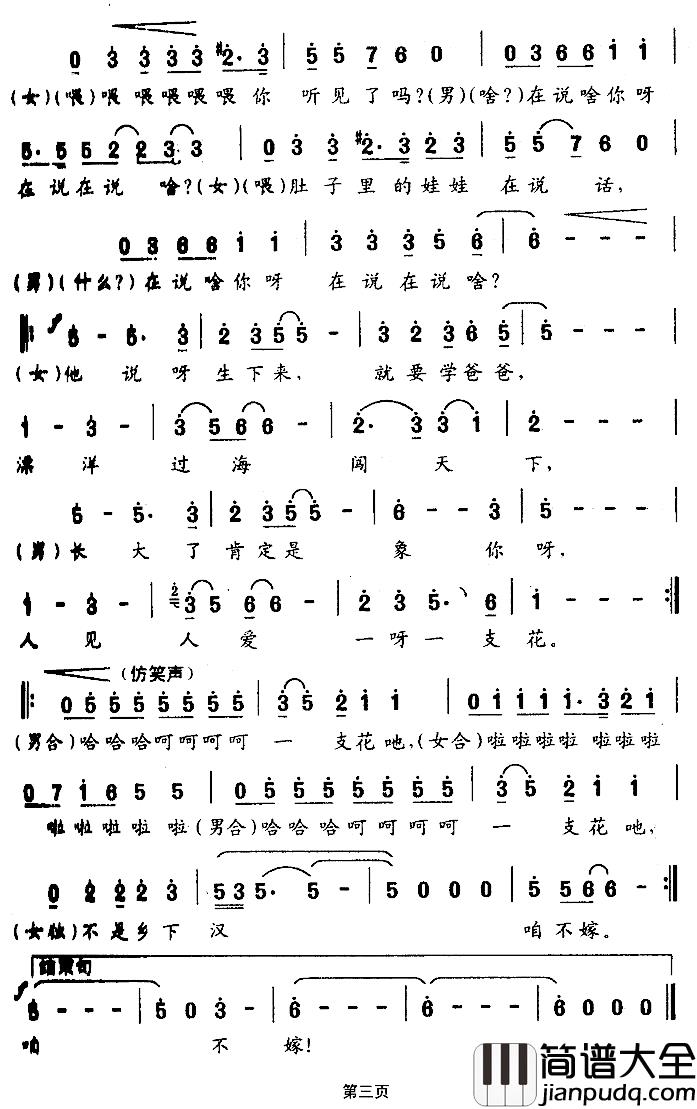 0 3 3 3 3 #2· 3 | 5 5 7 6 0 | 0 3 6 6 1 1 |
(女)(喂)喂 喂喂喂喂 你 听见了吗?(男)(啥?)在说啥你呀
5· 5 5 2 2 3 3 | 0 3 3 #2· 3 2 3 | 5 5 7 6 0 |
在说在说 啥?(女)(喂)肚子里的娃娃 在说 话,
0 3 6 6 1 1 | 3 3 3 5 6 | 6 - - - |
(男)(什么?)在说啥你呀 在说在说啥?
f
5 - 5· 3 | 2 3 5 5 - | 3 2 3 6 5 | 5 - - - |
(女)他 说呀生下来, 就要学爸爸,
1 - 3 - | 3 5 6 6 - | 2· 3 3 1 | 2 - - - |
漂 洋 过 海 闯 天 下,
5 - 5· 3 | 2 3 5 5 - | 6 - - 3 | 5 - - - |
(男)长 大了肯定是 象 你呀,
1 - 3 - | 2 3 5 6 6 - | 2 3 5· 6 | 1 - - - :‖
人 见 人 爱 一呀一支花。
(仿笑声)
0 5 5 5 5 5 5 5 | 3 5 2 1 1 | 0 1 1 1 1· 3 2 1 |
(男合)哈哈哈呵呵呵呵 一 支花吔,(女合)啦啦啦啦 啦啦啦
0 7 1 6 5 5 | 0 5 5 5 5 5 5 5 | 3 5 2 1 1 |
啦啦啦啦啦(男合)哈哈哈呵呵呵呵 一 支花吔,
0 2 2 2 2 3 | 5 3 5· 5 - | 5 0 0 0 | 5 5 6 6 - :‖
(女独)不是乡下 汉 咱不嫁。
结束句
f
5 - - - | 5 0 3 - | 6 - - - | 6 - - - | 6 0 0 0 ‖
咱 不 嫁!
简谱大全
jianpudq.com
第三页